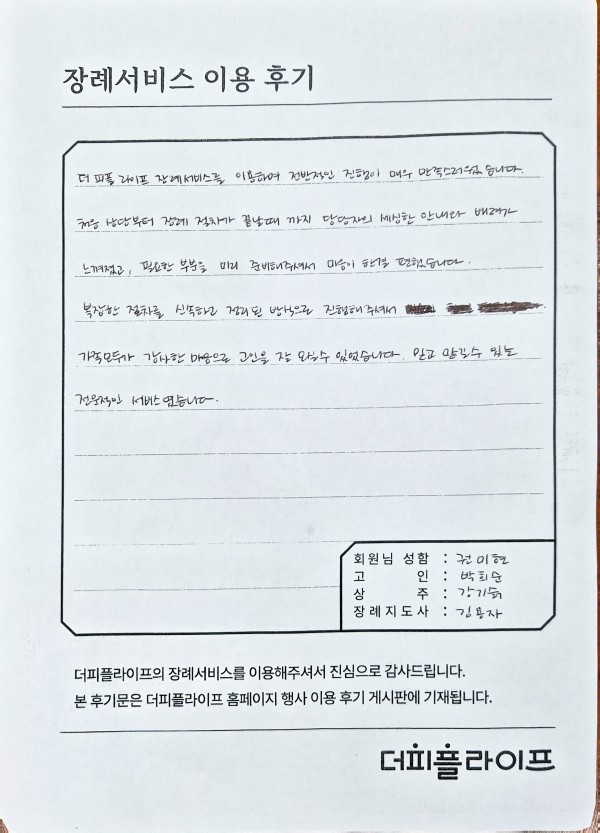 장례서비스 이용 후기
더 피플 라이프 장례서비스를 이용하며 전반적인 진행이 매우 만족스러웠습니다.
처음 상담부터 장례 절차가 끝날때 까지 담당자의 세심한 안내와 배려가
느껴졌고, 필요한 부분을 미리 준비해주셔서 마음이 한결 편했습니다.
복잡한 절차를 신속하고 정리된 방식으로 진행해주셔서
가족모두가 감사한 마음으로 고인을 잘 모실수 있었습니다. 믿고 맡길수 있는
전문적인 서비스였습니다.
회원님 성함 : 권미현
고 인 : 박희순
상 주 : 강기
장례지도사 : 김용자
더피플라이프의 장례서비스를 이용해주셔서 진심으로 감사드립니다.
본 후기문은 더피플라이프 홈페이지 행사 이용 후기 게시판에 기재됩니다.
더피플라이프